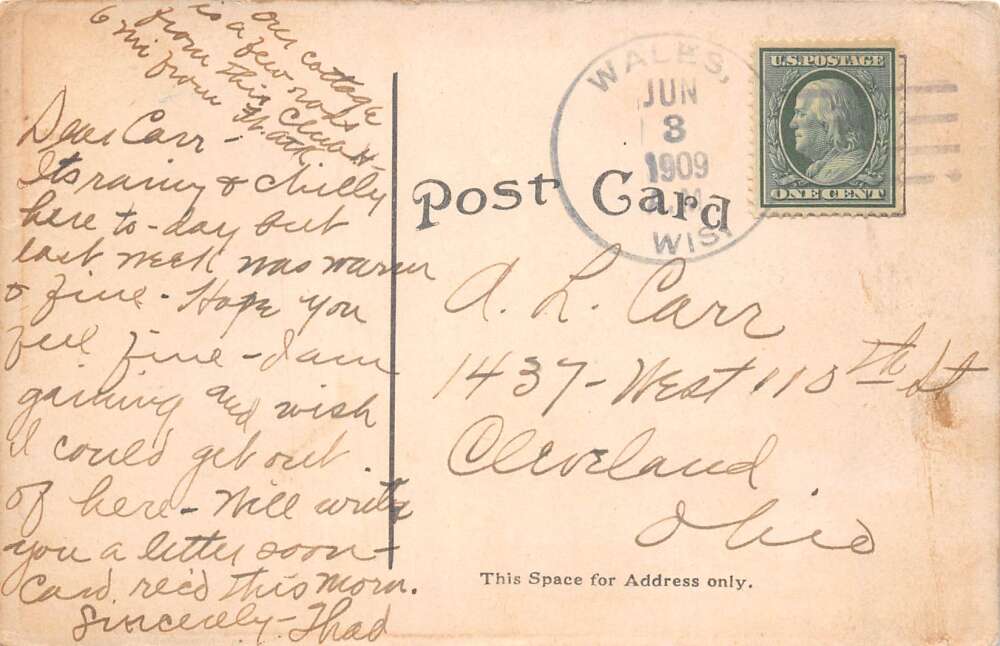 our cottage
is a few rods
from this Club H
6 mi from
Dear Carr -
Its rainy & chilly
here to-day but
last week was warm
& fine - Hope you
feel fine - I am
gaining and wish
I could get out
of here - Will write
you a letter soon -
Card rec'd this morn.
Sincerely - Thad
Post Card
WALES,
JUN
3
1909
M
WIS.
U.S. POSTAGE
ONE CENT
A. L. Carr
1437 - West 115th St
Cleveland
Ohio
This Space for Address only.